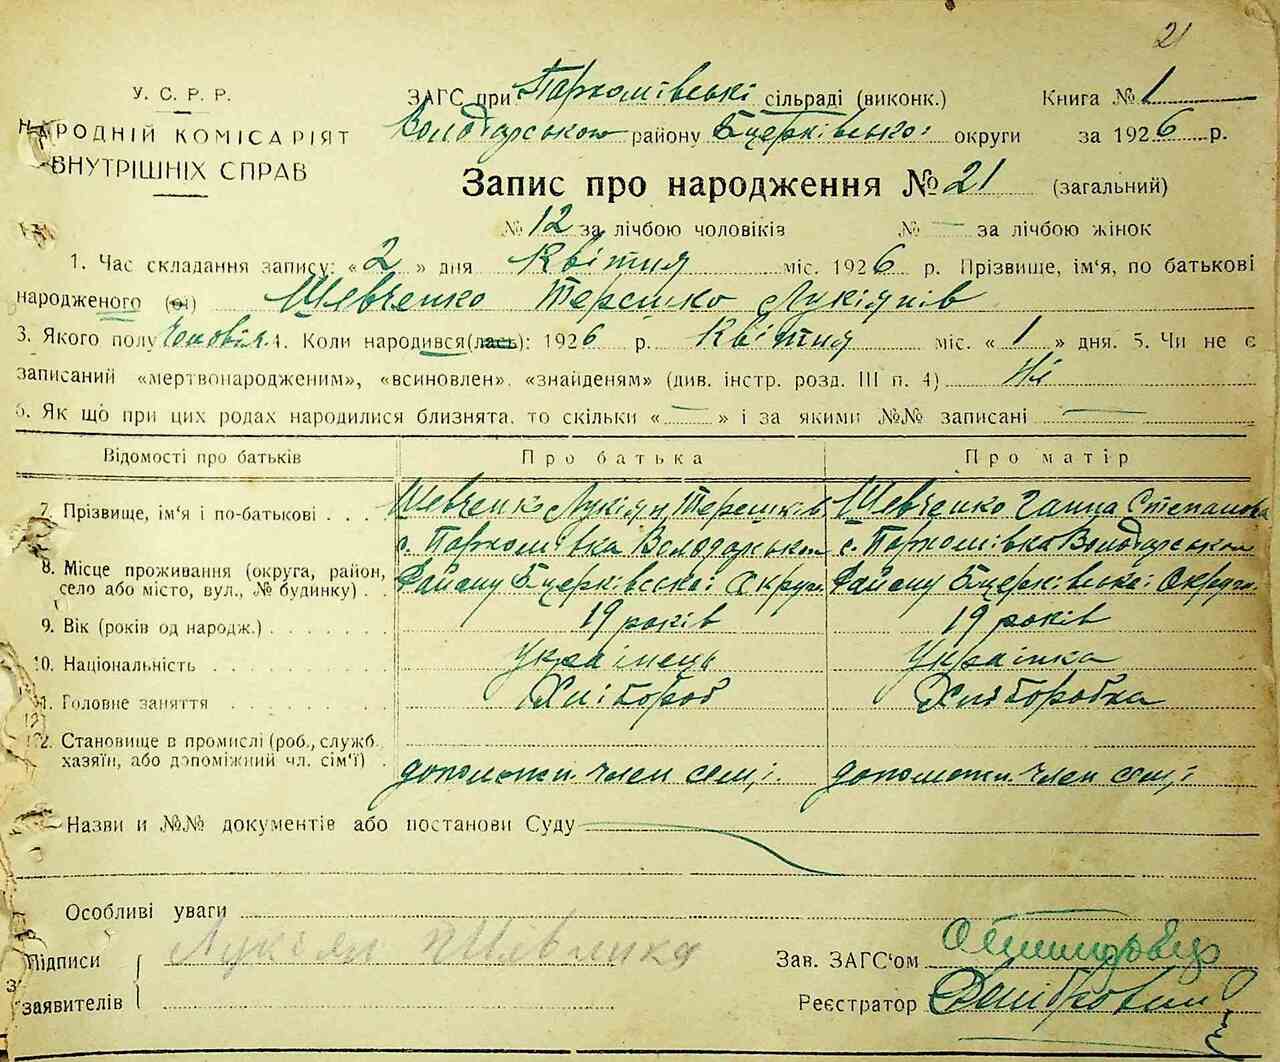 21
У. С. Р. Р.
НАРОДНІЙ КОМІСАРІЯТ
ВНУТРІШНІХ СПРАВ
ЗАГС при Пархомівські сільраді (виконк.) Книга № 1
Володарського району Бцерківської округи за 1926 р.
Запис про народження № 21 (загальний)
№ 12 за лічбою чоловіків № — за лічбою жінок
1. Час складання запису: «2» дня Квітня міс. 1926 р. Прізвище, ім'я, по батькові
народженого (ої) Шевченко Терешко Лукіянів
3. Якого полу Чоловіч. 4. Коли народився(лась): 1926 р. Квітня міс. «1» дня. 5. Чи не є
записаний «мертвонародженим», «всиновлен», «знайденям» (див. інстр. розд. III п. 4) Ні
6. Як що при цих родах народилися близнята, то скільки «—» і за якими №№ записані —
Відомості про батьків Про батька Про матір
7. Прізвище, ім'я і по-батькові . . . Шевченко Лукіян Терешків Шевченко Ганна Степанова
с. Пархомівка Володарськом с. Пархомівка Володарськом
8. Місце проживання (округа, район, село або місто, вул., № будинку) . . Району Бцерківської Округи Району Бцерківської Округи
9. Вік (років од народж.) . . . . . . . 19 років 19 років
10. Національність . . . . . . . . . Українець Українка
11. Головне заняття . . . . . . . . Хлібороб Хліборобка
12. Становище в промислі (роб., служб. хазяїн, або допоміжний чл. сім'ї) . допоможн. член семі допоможн. член семі
Назви и №№ документів або постанови Суду
Особливі уваги
Підписи
заявителів
Лукіян Шевченко
Зав. ЗАГС'ом
Реєстратор